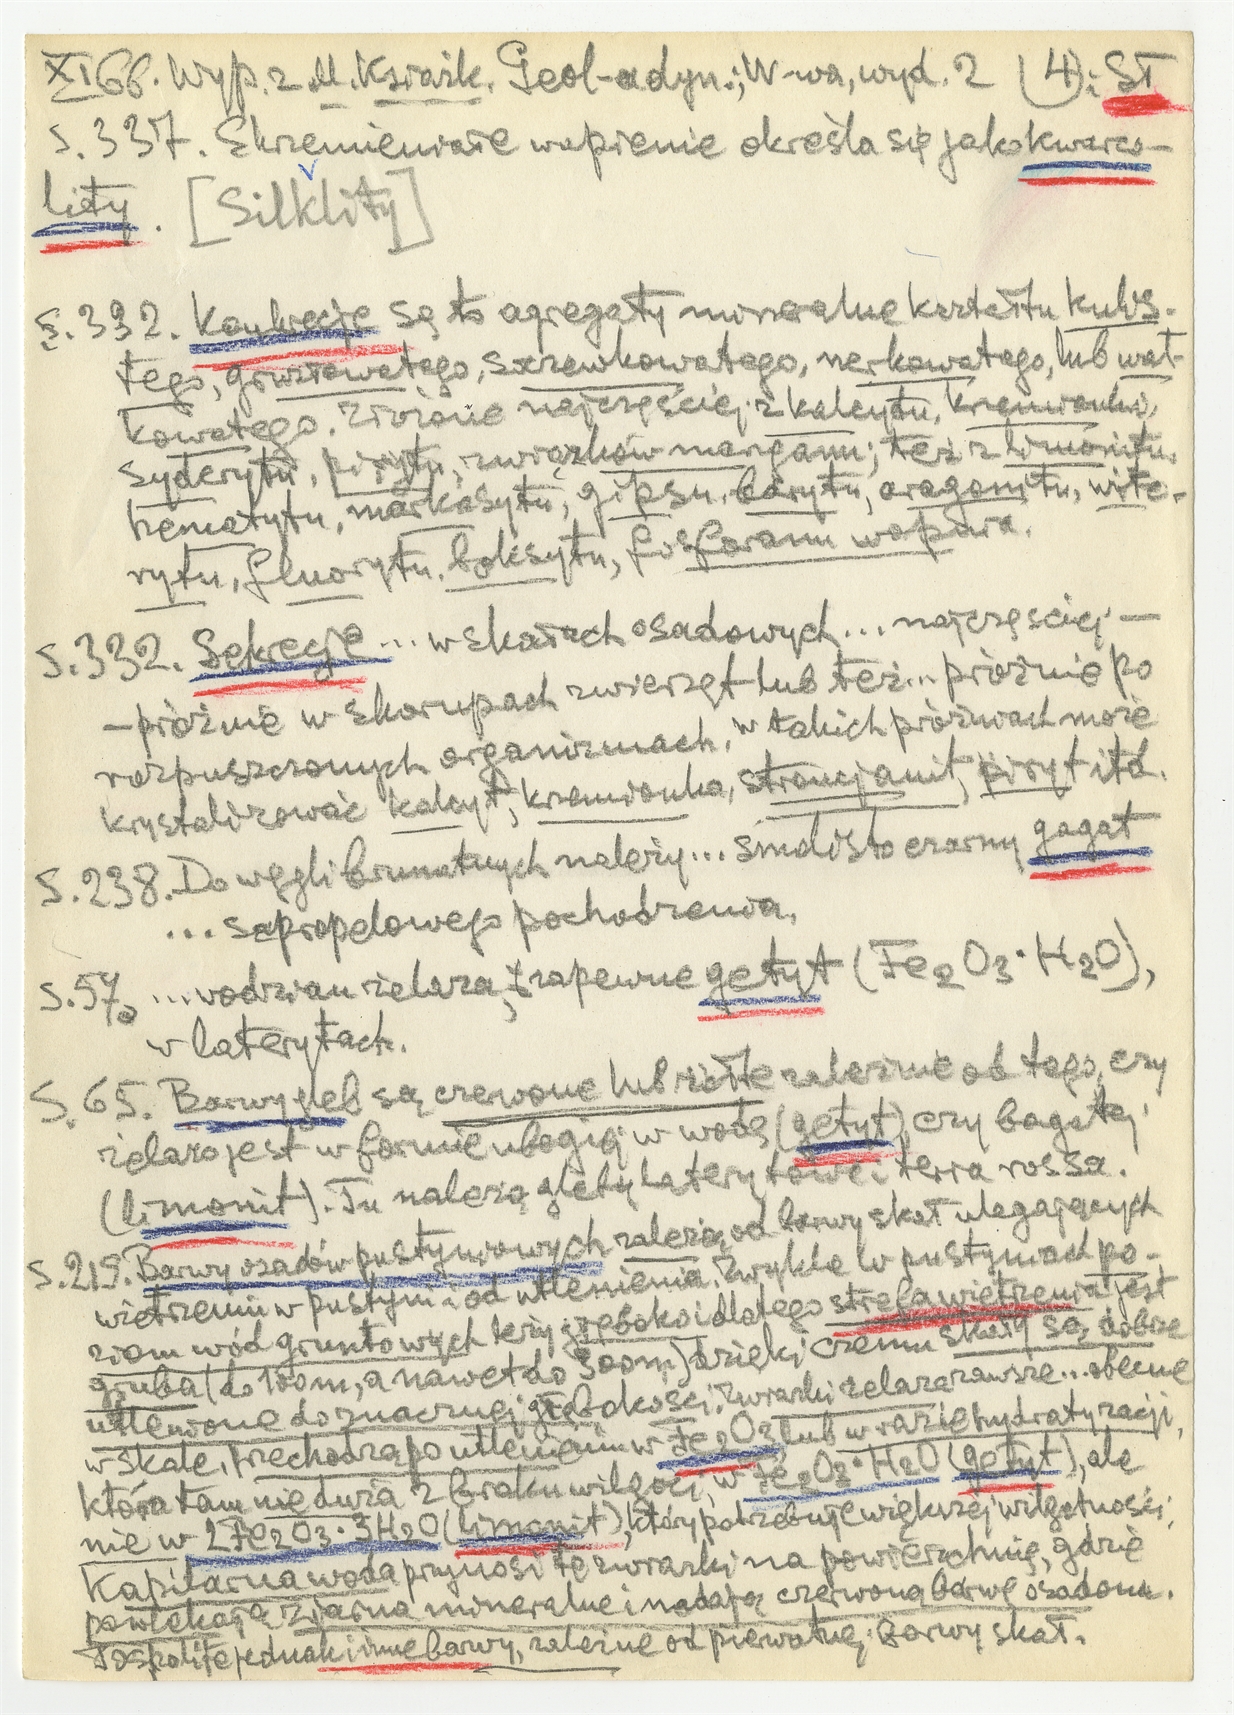 XI 66. Wyp. z M. Książk. Geol-adyn.; W-wa, wyd. 2 (4): ST
S. 337. Skrzemieniałe wapienie określa się jako kwarco-
lity. [Silklity]
S. 332. Konkrecje są to agregaty mineralne kształtu kulis-
tego, gruzłowatego, soczewkowatego, nerkowatego, lub wał-
kowatego. Złożone najczęściej z kalcytu, krzemionki,
syderytu, pirytu, związków manganu; też z limonitu,
hematytu, markasytu, gipsu, barytu, aragonitu, wite-
rytu, fluorytu, boksytu, fosforanu wapnia.
S. 332. Sekrecje ... w skałach osadowych ... najczęściej —
— próżnie w skorupach zwierząt lub też... próżnie po
rozpuszczonych organizmach, w takich próżniach może
krystalizować kalcyt, krzemionka, stroncjanit, piryt itd.
S. 238. Do węgli brunatnych należy... smolisto czarny gagat
... sapropelowego pochodzenia.
S. 57. ...wodzian żelaza, zapewne getyt (Fe2O3·H2O),
w laterytach.
S. 65. Barwy gleb są czerwone lub żółte zależnie od tego, czy
żelazo jest w formie ubogiej w wodę (getyt), czy bogatej
(limonit). Tu należą gleby laterytowe i terra rossa.
S. 219. Barwy osadów pustyniowych zależą od barwy skał ulegających
wietrzeniu w pustyni i od utlenienia. Zwykle w pustyniach po-
ziom wód gruntowych leży głęboko i dlatego strefa wietrzenia jest
gruba (do 100m, a nawet do 300m) dzięki czemu skały są dobrze
utlenione do znacznej głębokości. Związki żelaza zawsze... obecne
w skale, przechodzą po utlenieniu w Fe2O3, lub w razie hydratyzacji,
która tam nie duża z braku wilgoci, w Fe2O3·H2O (getyt), ale
nie w 2Fe2O3·3H2O (limonit), który potrzebuje większej wilgotności.
Kapilarna woda przynosi te związki na powierzchnię, gdzie
powlekają ziarna mineralne i nadają czerwoną barwę osadom.
Pospolite jednak i inne barwy, zależne od pierwotnej barwy skał.